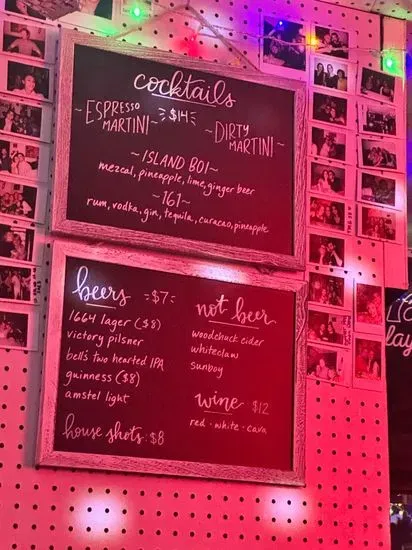 cocktails
~ESPRESSO MARTINI~
$14
~DIRTY MARTINI~
~ISLAND BOI~
mezcal, pineapple, lime, ginger beer
~161~
rum, vodka, gin, tequila, curacao, pineapple
beers $7
1664 lager ($8)
victory pilsner
bell's two hearted IPA
guinness ($8)
amstel light
house shots: $8
not beer
woodchuck cider
whiteclaw
sunboy
wine $12
red · white · cava